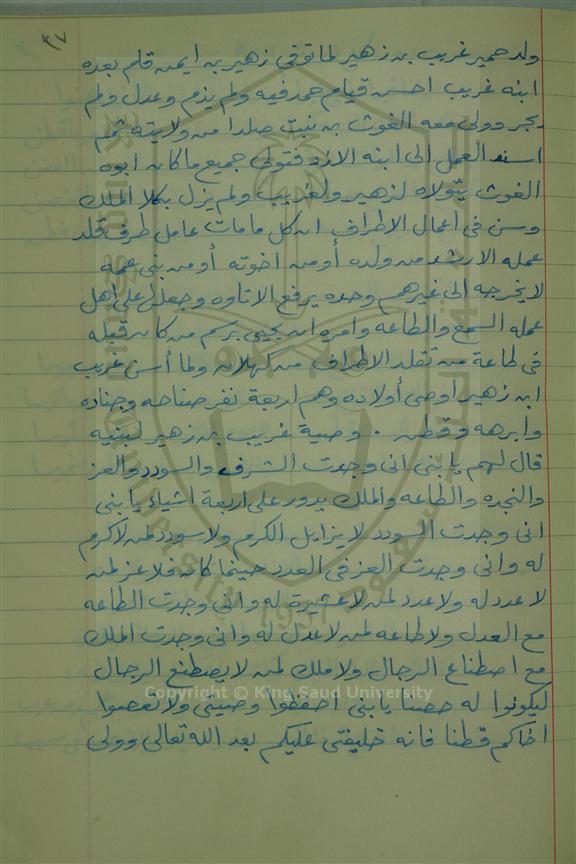 ٣٧
ولد حمير غريب بن زهير لما توفى زهير بن ايمن قام بعده
ابنه غريب احسن قيام حمد فيه ولم يذم وعدل ولم
يجر وولى معه الغوث بن نبت صلدا من ولايته ثم
اسند العمل الى ابنه الازد فتولى جميع ما كان ابوه
الغوث يتولاه لزهير ولغريب ولم يزل بكلا الملك
وسن فى اعمال الاطراف ان كل ما مات عامل طرف قلد
عمله الارشد من ولده أو من اخوته أو من بنى عمه
لا يخرجه الى غيرهم وحده يرفع الاتاوه وجعل له على اهل
عمله السمع والطاعه وامره ان يحيى برسم من كان قبله
فى طاعة من تقلد الاطراف من كهلان ولما أسن غريب
ابن زهير اوصى أولاده وهم اربعة نفر صناحه وجناده
وابرهه وقطن . وصية غريب بن زهير لبنيه
قال لهم يا بنى انى وجدت الشرف والسودد والعز
والنجده والطاعه والملك يدور على اربعة اشياء يا بنى
انى وجدت السودد لا يزايل الكرم ولا سودد لمن لا كرم
له وانى وجدت العز فى العدد حيثما كان فلا عز لمن
لا عدد له ولا عدد لمن لا عشيرة له وانى وجدت الطاعه
مع العدل ولا طاعه لمن لا عدل له وانى وجدت الملك
مع اصطناع الرجال ولا ملك لمن لا يصطنع الرجال
ليكونوا له حصنا يا بنى احفظوا وصيتى ولا تعصوا
اخاكم قطنا فانه خليفتى عليكم بعد الله تعالى وولى
Copyright © King Saud University